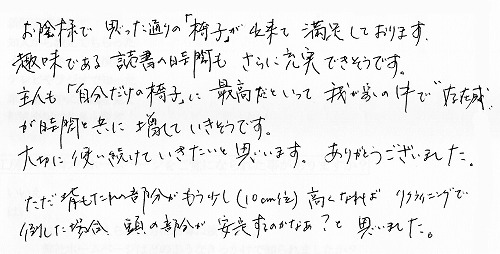 お陰様で思った通りの「椅子」が出来て満足しております。
趣味である読書の時間もさらに充実できそうです。
主人も「自分だけの椅子」に最高だといって我が家の中で"存在感"
が時間と共に増していきそうです。
大切に使い続けていきたいと思います。ありがとうございました。
ただ背もたれの部分がもう少し(10cm位)高くなれば リクライニングで
倒した場合、頭の部分が安定するのかなあ?と思いました。